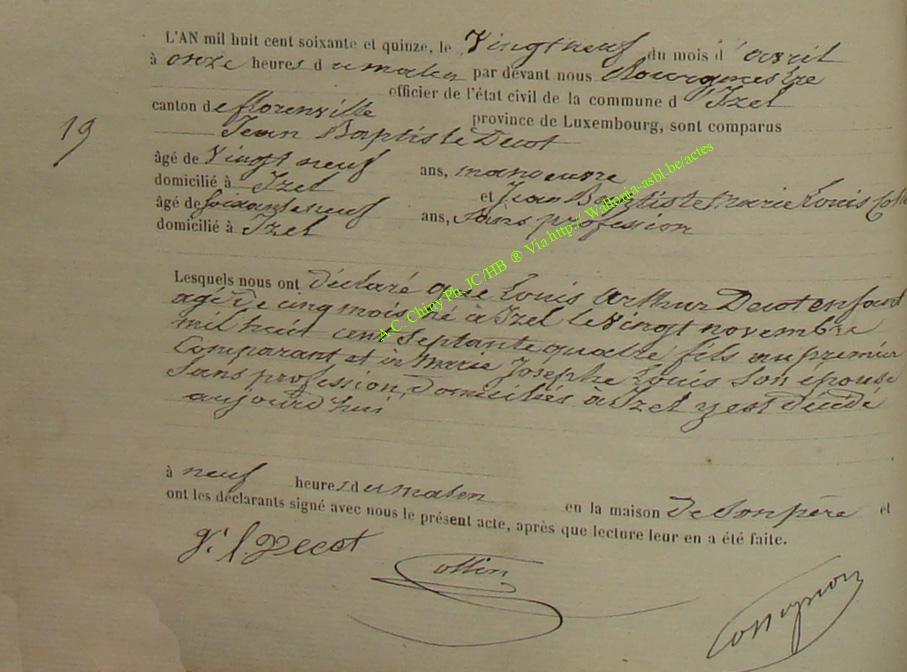 L'AN mil huit cent soixante et quinze, le Vingt neuf du mois d'avril
à onze heures du matin par devant nous Bourgmestre
officier de l'état civil de la commune d'Izel
canton de florenville province de Luxembourg, sont comparus
19
Jean Baptiste Decot
âgé de Vingt neuf ans, manoeuvre
domicilié à Izel et Jean Baptiste Marie Louis
âgé de soixante neuf ans, sans profession
domicilié à Izel
Lesquels nous ont déclaré que Louis Arthur Decot enfant
agé de cinq mois, né a Izel le vingt novembre
mil huit cent septante quatre fils au premier
Comparant et à Marie Josephe Louis son épouse
sans profession, domiciliés a Izel y est décédé
aujourd'hui
à neuf heures du matin en la maison de son père et
ont les déclarants signé avec nous le présent acte, après que lecture leur en a été faite.
Decot
Collin
Rossignon
A.C. Chiny Ph. JC/HB ® Via http://. Wallonia-asbl.be/actes